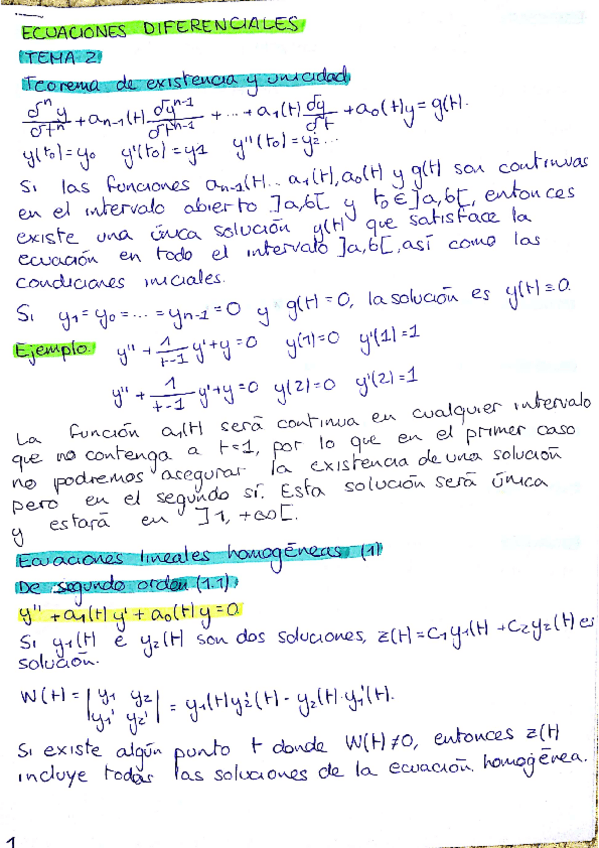 ECUACIONES DIFERENCIALES
TEMA 2
Teorema de existencia y unicidad
δⁿy/δtⁿ + aₙ₋₁(t) δyⁿ⁻¹/δtⁿ⁻¹ + ... + a₁(t) δy/δt + a₀(t)y = g(t).
y(t₀)=y₀ y'(t₀)=y₁ y''(t₀)=y₂...
Si las funciones aₙ₋₁(t)... a₁(t), a₀(t) y g(t) son continuas
en el intervalo abierto ]a,b[ y t₀∈]a,b[, entonces
existe una única solución y(t) que satisface la
ecuación en todo el intervalo ]a,b[, así como las
condiciones iniciales.
Si y₁=y₀=...=yₙ₋₁=0 y g(t)=0, la solución es y(t)≡0.
Ejemplo. y'' + 1/(t-1) y' + y = 0 y(1)=0 y'(1)=1
y'' + 1/(t-1) y' + y = 0 y(2)=0 y'(2)=1
La función a₁(t) será continua en cualquier intervalo
que no contenga a t=1, por lo que en el primer caso
no podremos asegurar la existencia de una solución
pero en el segundo sí. Esta solución será única
y estará en ]1,+∞[.
Ecuaciones lineales homogéneas (1)
De segundo orden (1.1)
y'' + a₁(t)y' + a₀(t)y = 0
Si y₁(t) e y₂(t) son dos soluciones, z(t)=C₁y₁(t)+C₂y₂(t) es
solución.
W(t) = |y₁ y₂| = y₁(t)y₂'(t) - y₂(t)·y₁'(t).
|y₁' y₂'|
Si existe algún punto t donde W(t)≠0, entonces z(t)
incluye todas las soluciones de la ecuación homogénea.
1